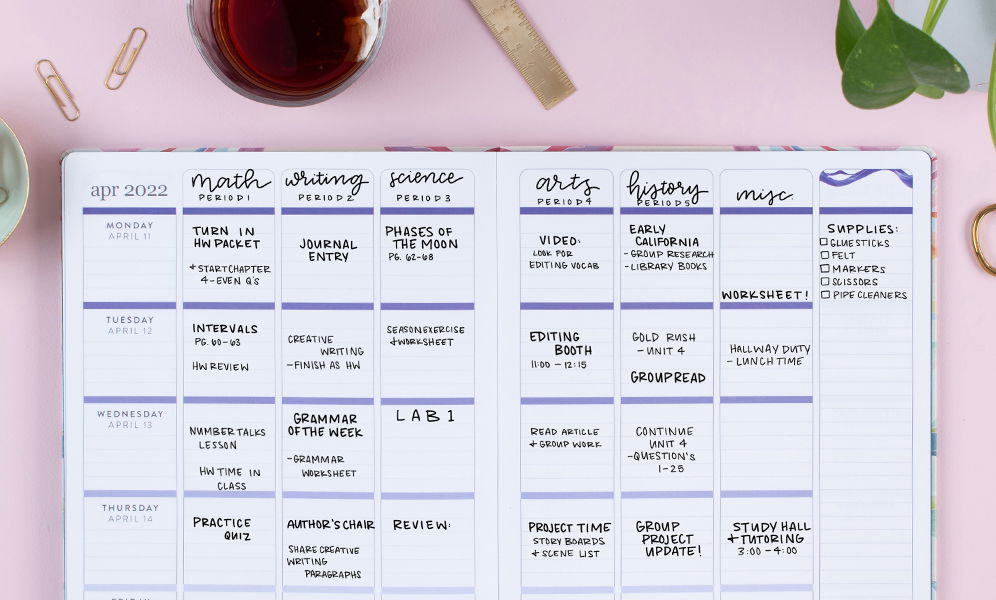 apr 2022
math
PERIOD 1
writing
PERIOD 2
science
PERIOD 3
arts
PERIOD 4
history
PERIOD 5
misc.
MONDAY
APRIL 11
TURN IN
HW PACKET
+ START CHAPTER
4-EVEN Q'S
JOURNAL
ENTRY
PHASES OF
THE MOON
PG. 62-68
VIDEO:
LOOK FOR
EDITING VOCAB
EARLY
CALIFORNIA
-GROUP RESEARCH
-LIBRARY BOOKS
WORKSHEET!
SUPPLIES:
GLUE STICKS
FELT
MARKERS
SCISSORS
PIPE CLEANERS
TUESDAY
APRIL 12
INTERVALS
PG. 60-63
HW REVIEW
CREATIVE
WRITING
-FINISH AS HW
SEASON EXERCISE
+ WORKSHEET
EDITING
BOOTH
11:00 - 12:15
GOLD RUSH
- UNIT 4
GROUP READ
HALLWAY DUTY
- LUNCH TIME
WEDNESDAY
APRIL 13
NUMBER TALKS
LESSON
HW TIME IN
CLASS
GRAMMAR
OF THE WEEK
-GRAMMAR
WORKSHEET
LAB 1
READ ARTICLE
+ GROUP WORK
CONTINUE
UNIT 4
-QUESTION'S
1-25
THURSDAY
APRIL 14
PRACTICE
QUIZ
AUTHOR'S CHAIR
SHARE CREATIVE
WRITING
PARAGRAPHS
REVIEW:
PROJECT TIME
STORY BOARDS
+ SCENE LIST
GROUP
PROJECT
UPDATE!
STUDY HALL
+ TUTORING
3:00 - 4:00